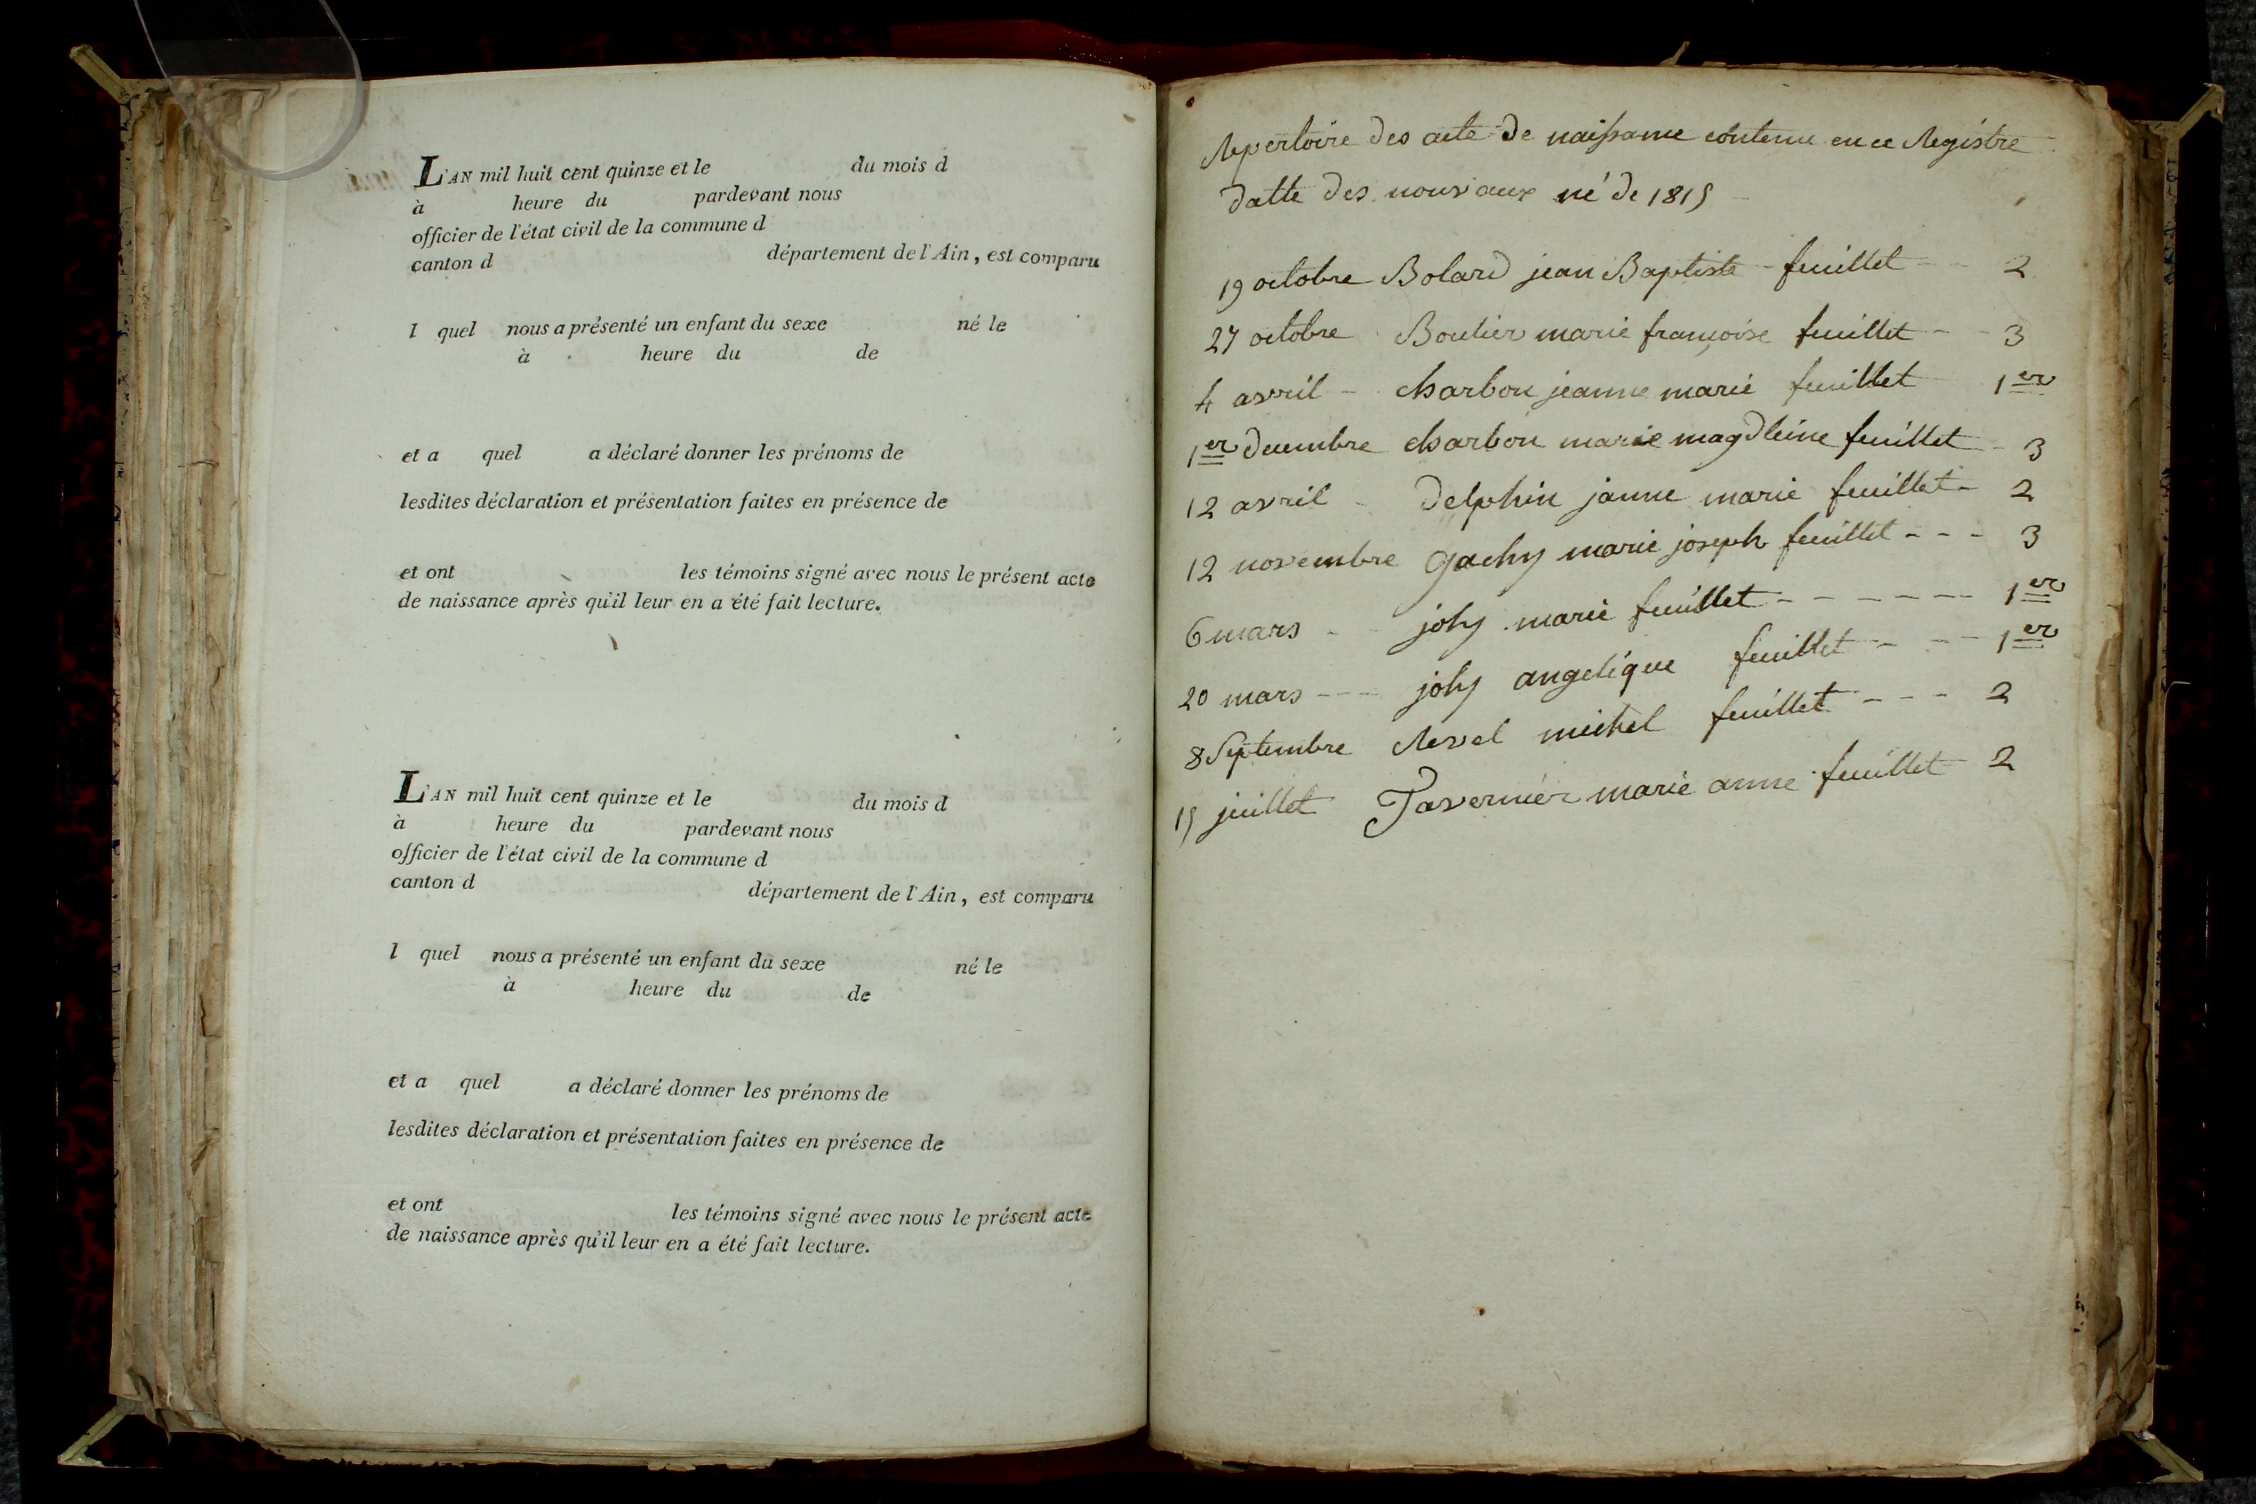 L'AN mil huit cent quinze et le du mois d
à heure du pardevant nous
officier de l'état civil de la commune d
canton d département de l'Ain, est comparu
l quel nous a présenté un enfant du sexe né le
à heure du de
et a quel a déclaré donner les prénoms de
lesdites déclaration et présentation faites en présence de
et ont les témoins signé avec nous le présent acte
de naissance après qu'il leur en a été fait lecture.
L'AN mil huit cent quinze et le du mois d
à heure du pardevant nous
officier de l'état civil de la commune d
canton d département de l'Ain, est comparu
l quel nous a présenté un enfant du sexe né le
à heure du de
et a quel a déclaré donner les prénoms de
lesdites déclaration et présentation faites en présence de
et ont les témoins signé avec nous le présent acte
de naissance après qu'il leur en a été fait lecture.
Repertoire des acte de naissance contenu en ce Registre
datte des nouvaux né de 1815
19 octobre Bolard jean Baptiste feuillet 2
27 octobre Boulier marie françoise feuillet 3
4 avril charbon jeanne marie feuillet 1er
1er decembre charbon marie magdleine feuillet 3
12 avril delphin janne marie feuillet 2
12 novembre gachy marie joseph feuillet 3
6 mars joly marie feuillet 1er
20 mars joly angelique feuillet 1er
8 Septembre Revel michel feuillet 2
15 juillet Tavernier marie anne feuillet 2